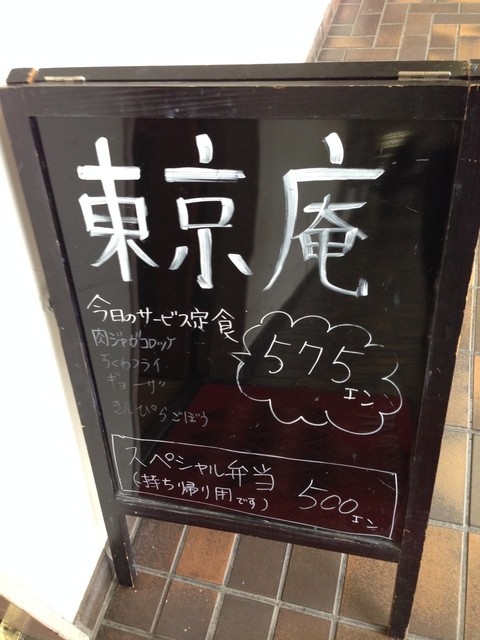 東京庵
今日のサービス定食
肉ジャガコロッケ
ちくわフライ
ギョーザ
きんぴらごぼう
575
エン
スペシャル弁当
(持ち帰り用です)
500
エン